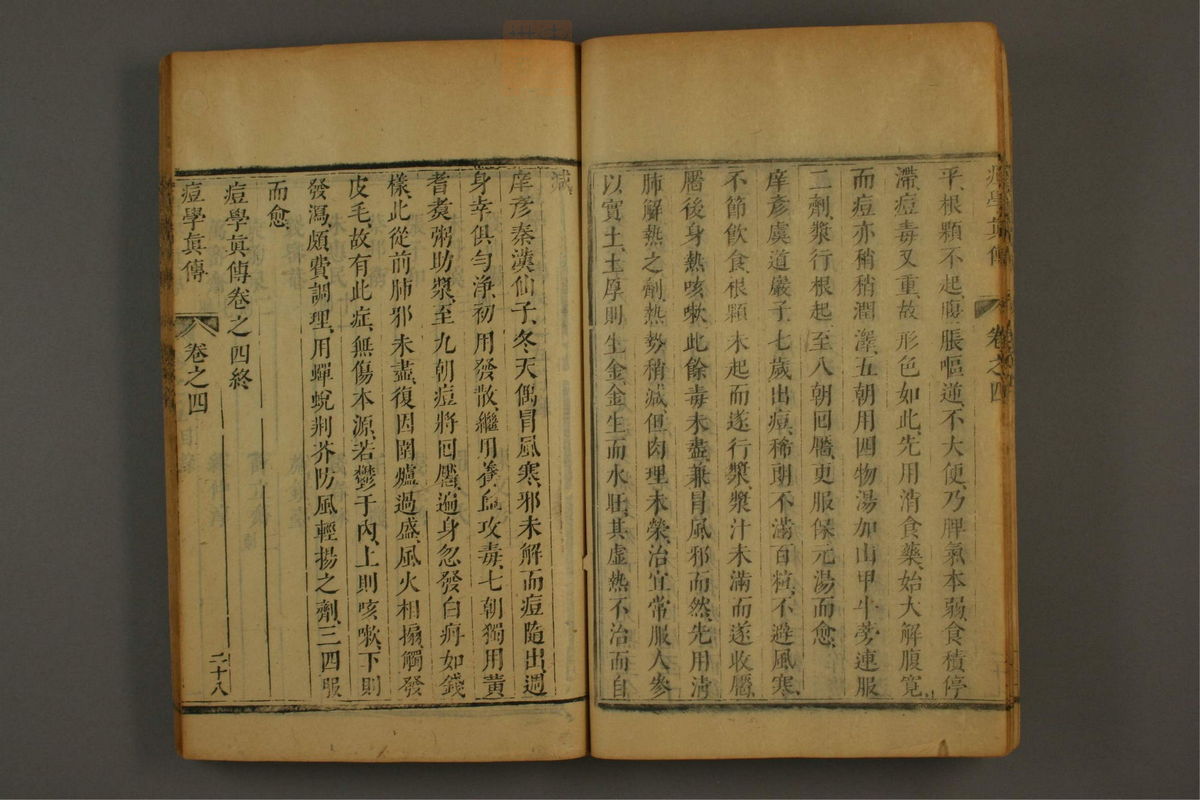 痘學眞傳 卷之四
平、根顆不起、腹脹嘔逆、不大便、乃脾氣本弱、食積停
滯、痘毒又重、故形色如此、先用消食藥、始大解腹寬、
而痘亦稍稍潤澤、五朝用四物湯加山甲牛蒡連服
二劑、漿行根起、至八朝回靨、更服保元湯而愈、
庠彥虞道嚴子、七歲出痘、稀朗不滿百粒、不避風寒、
不節飲食、根顆未起而遂行漿、漿汁未滿而遂收靨、
靨後身熱咳嗽、此餘毒未盡、兼冒風邪而然、先用清
肺解熱之劑、熱勢稍減、但肉理未榮、治宜常服人參
以實土、土厚則生金、金生而水旺、其虛熱不治而自
減、
庠彥秦漢仙子、冬天偶冒風寒、邪未解而痘隨出、遍
身幸俱勻淨、初用發散、繼用養血攻毒、七朝獨用黃
耆煑粥助漿、至九朝痘將回靨、遍身忽發白㾦如錢
樣、此從前肺邪未盡、復因圍爐過盛、風火相搧、觸發
皮毛、故有此症、無傷本源、若鬱于內、上則咳嗽、下則
發瀉、頗費調理、用蟬蛻荆芥防風輕揚之劑、三四服
而愈、
痘學眞傳卷之四終
痘學眞傳 卷之四 二十八